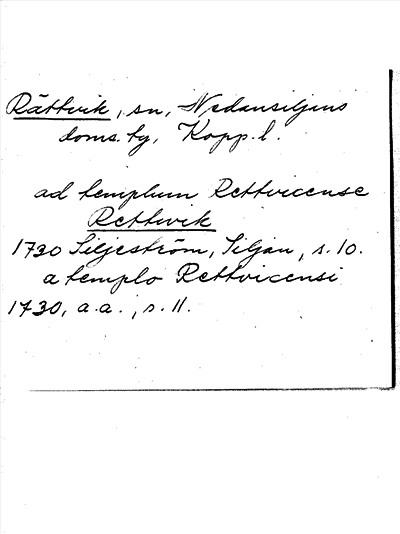 Rättvik, sn, Nedansiljans
doms. tg, Kopp. l.
ad templum Rettvicense
Rettwik
1730 Siljeström, Siljan, s. 10.
a templo Rettvicensi
1730, a.a., s. 11.